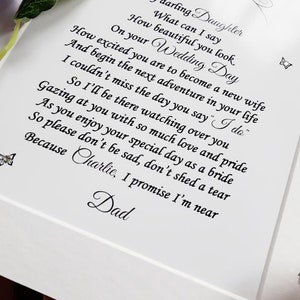 darling Daughter
What can I say
How beautiful you look
On your Wedding Day
How excited you are to become a new wife
And begin the next adventure in your life
I couldn't miss the day you say "I do"
So I'll be there watching over you
Gazing at you with so much love and pride
As you enjoy your special day as a bride
So please don't be sad, don't shed a tear
Because Charlie, I promise I'm near
Dad